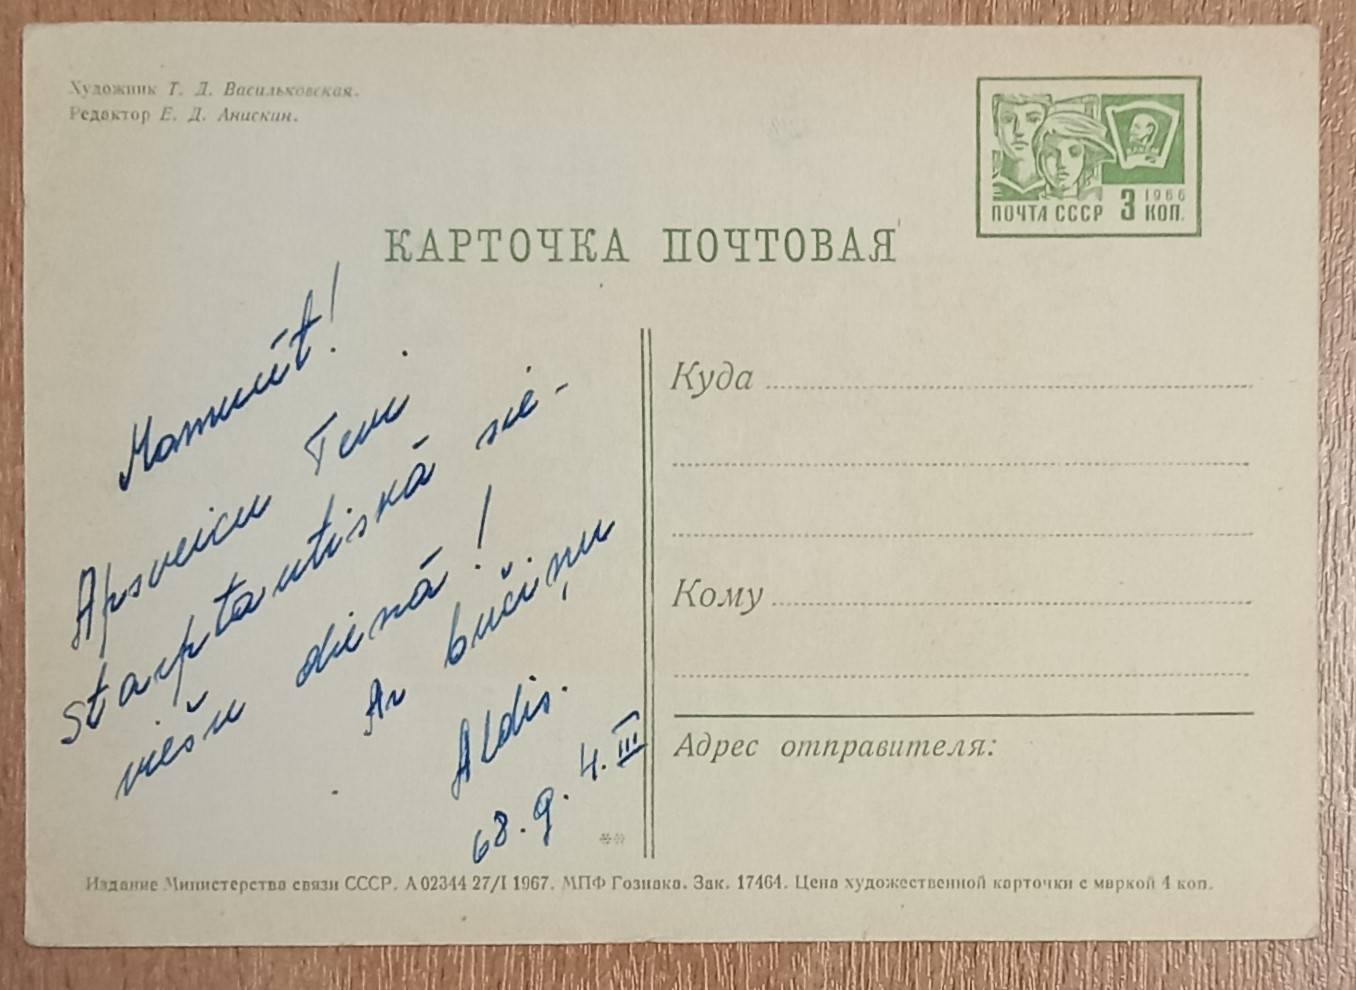 Художник Т. Д. Васильковская.
Редактор Е. Д. Анискин.
1966
ПОЧТА СССР 3 КОП.
КАРТОЧКА ПОЧТОВАЯ
Mammīt!
Apsveicu Tevi
starptautiskā sie-
viešu dienā!
Ar bučiņu
Aldis.
68. g. 4. III
Куда
Кому
Адрес отправителя:
Издание Министерства связи СССР. А 02344 27/I 1967. МПФ Гознака. Зак. 17464. Цена художественной карточки с маркой 4 коп.